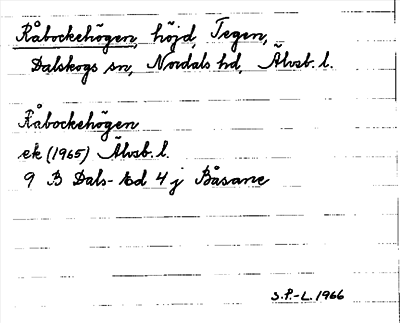 Råbockehögen, höjd, Tegen,
Dalskogs sn, Nordals hd, Älvsb. l.
Råbockehögen
ek (1965) Älvsb. l.
9 B Dals-Ed 4 j Båsane
S.P.-L. 1966